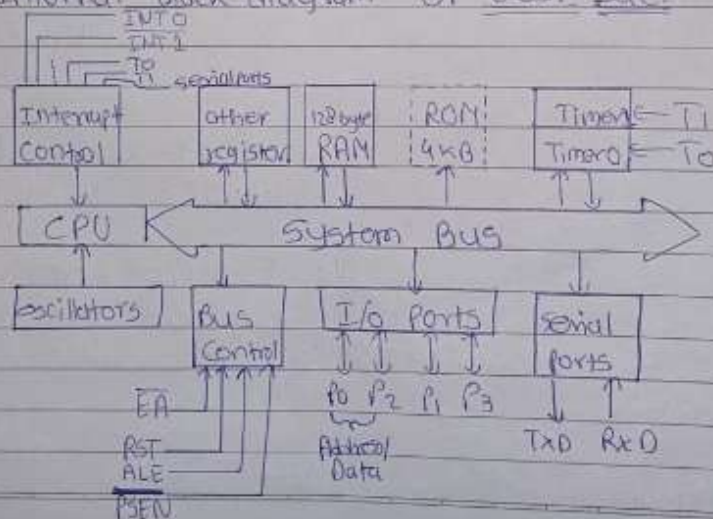 Internal Block diagram of
INT0
INT1
T0
T1 serial ports
Interrupt Control
other register
128 byte RAM
ROM 4KB
Timer1 T1
Timer0 T0
CPU
System Bus
oscillators
Bus Control
I/O Ports
serial Ports
P0 P2 P1 P3
Address/ Data
TXD RXD
EA
RST
ALE
PSEN